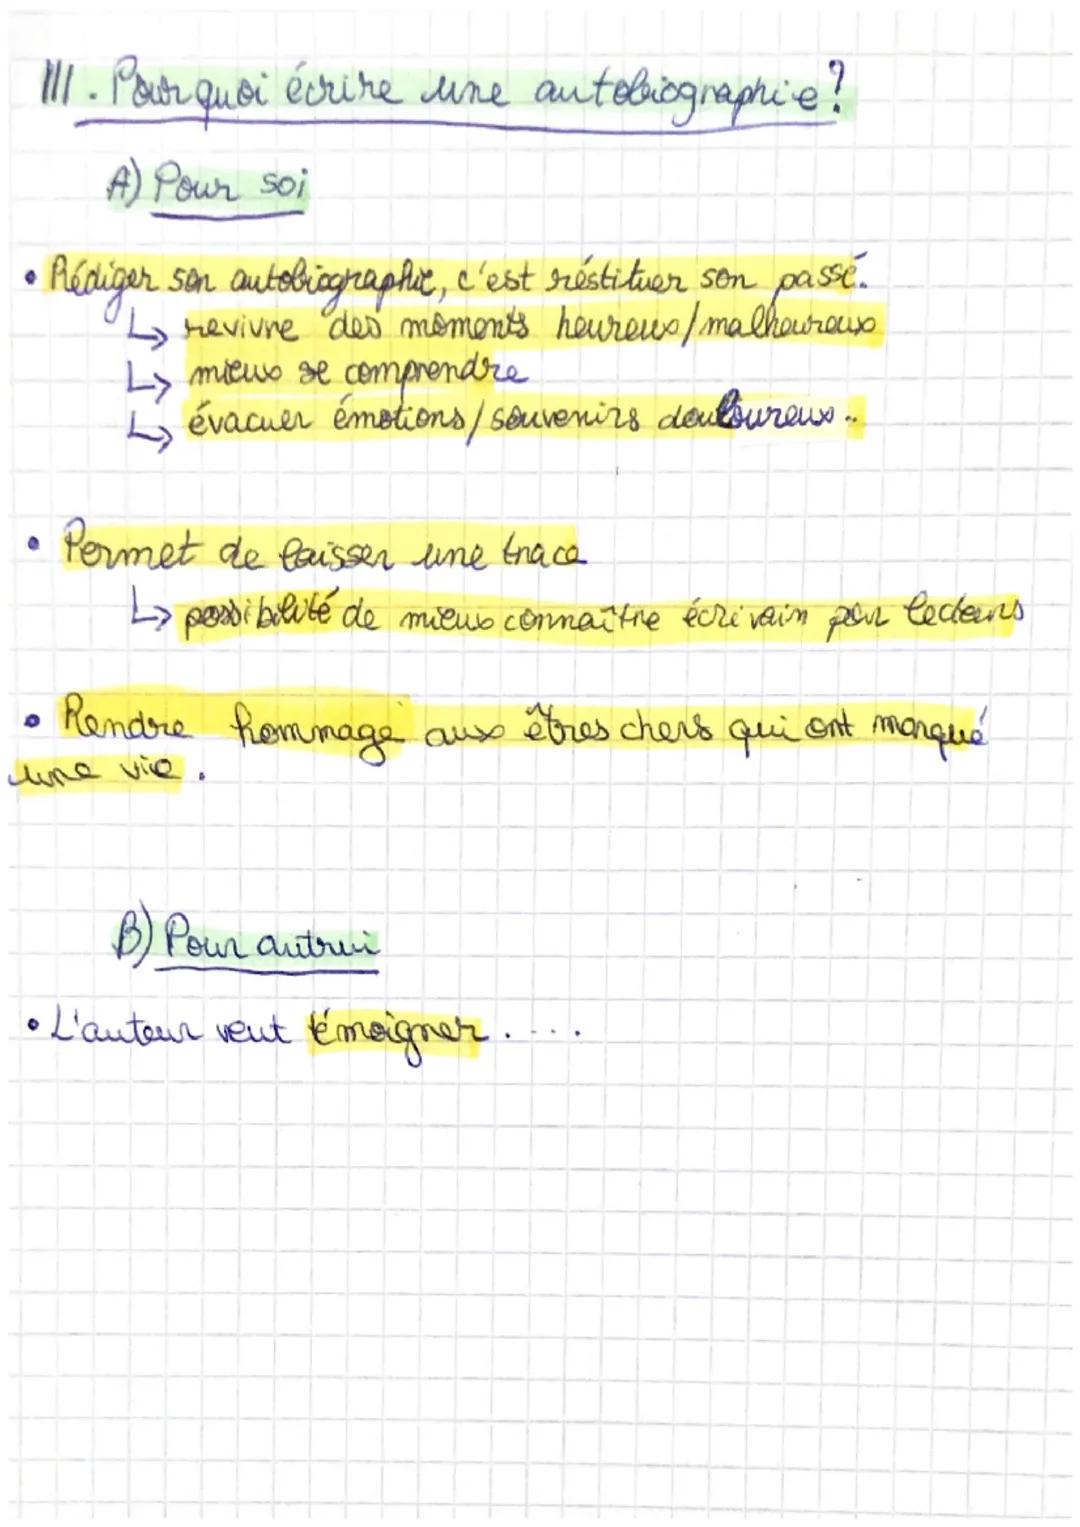 III. Pourquoi écrire une autobiographie?
A) Pour soi
• Rédiger son autobiographie, c'est réstituer son passé.
↳ revivre des moments heureux/malheureux
↳ mieux se comprendre
↳ évacuer émotions/souvenirs douloureux..
• Permet de laisser une trace
↳ possibilité de mieux connaître écrivain par lecteurs
• Rendre hommage aux êtres chers qui ont marqué
une vie.
B) Pour autrui
• L'auteur veut témoigner.....